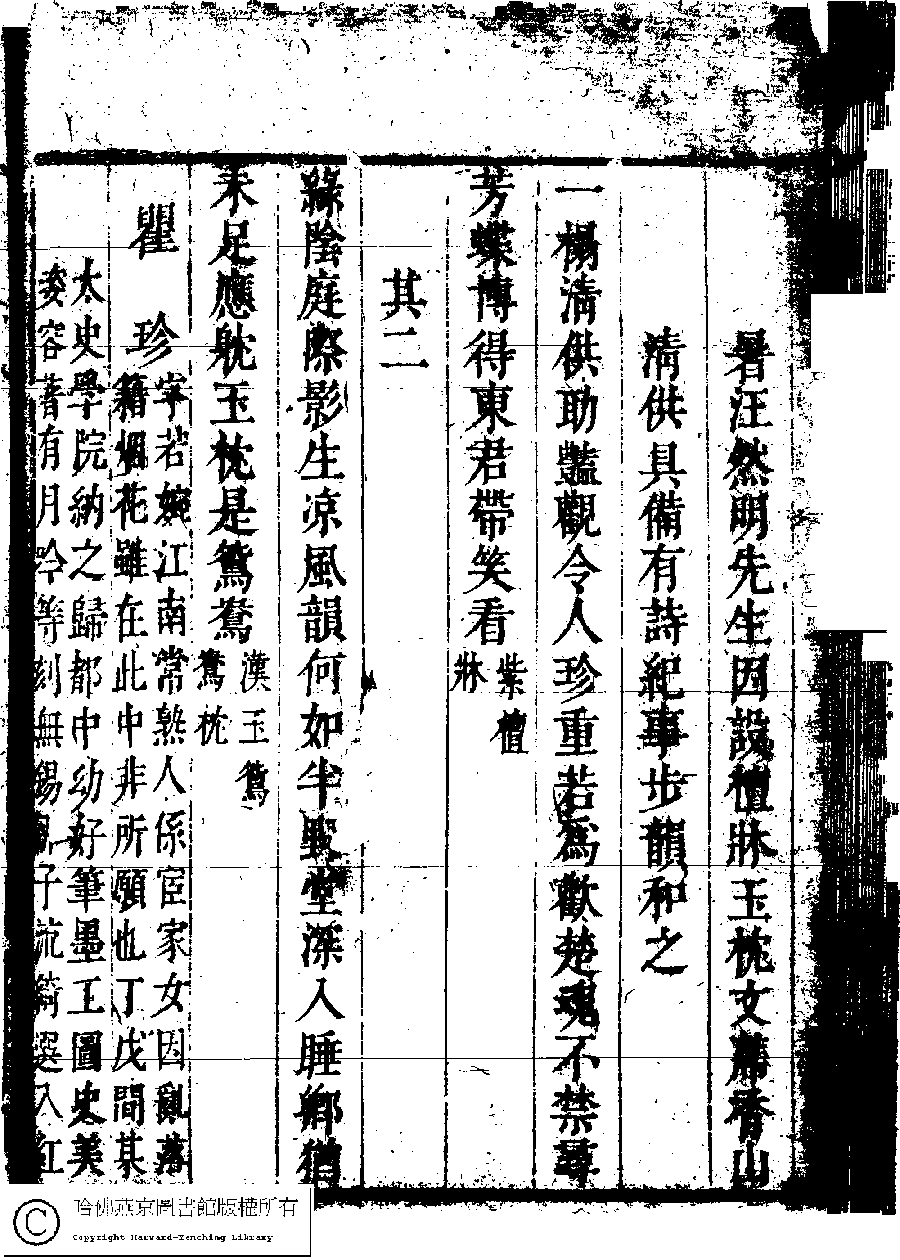 暑汪然明先生因設檀牀玉枕文簟香山
清供具備有詩紀事步韻和之
一榻清供助豔觀令人珍重若爲歡楚魂不禁尋
芳蝶博得東君帶笑看
紫檀
牀
其二
綠陰庭際影生凉風韻何如半野堂深入睡鄉猶
未足應躭玉枕是鴛鴦
漢玉鴛
鴦枕
瞿珍
字若婉江南常熟人係宦家女因亂落
籍烟花雖在此中非所願也丁戊間某
太史學院納之歸都中幼好筆墨工圖史美
姿容著有月吟等刻無錫 子 綺選入紅
哈佛燕京圖書館版權所有
Copyright Harvard-Yenching Library